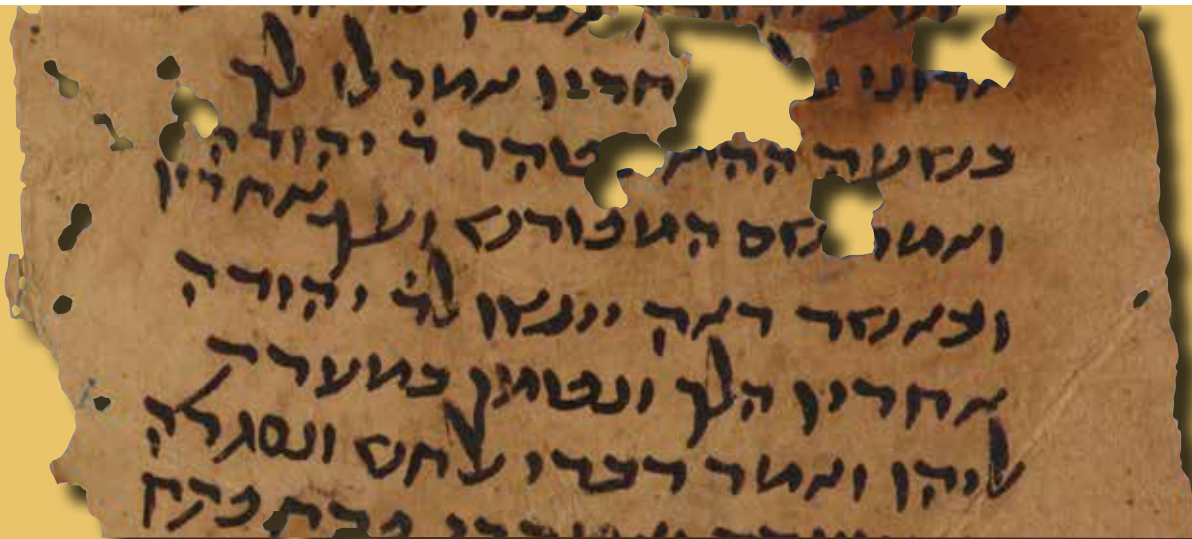 אדוני חריו אמר לו לך
בשעה ההיא טהר ר יהודה
ואמר שם המפורש ועף אחריו
וכאשר ראה יישו לר יהודה
אחריו הלך ונטמן במערה
אליהו ואמר דברי לחש ונסגרה